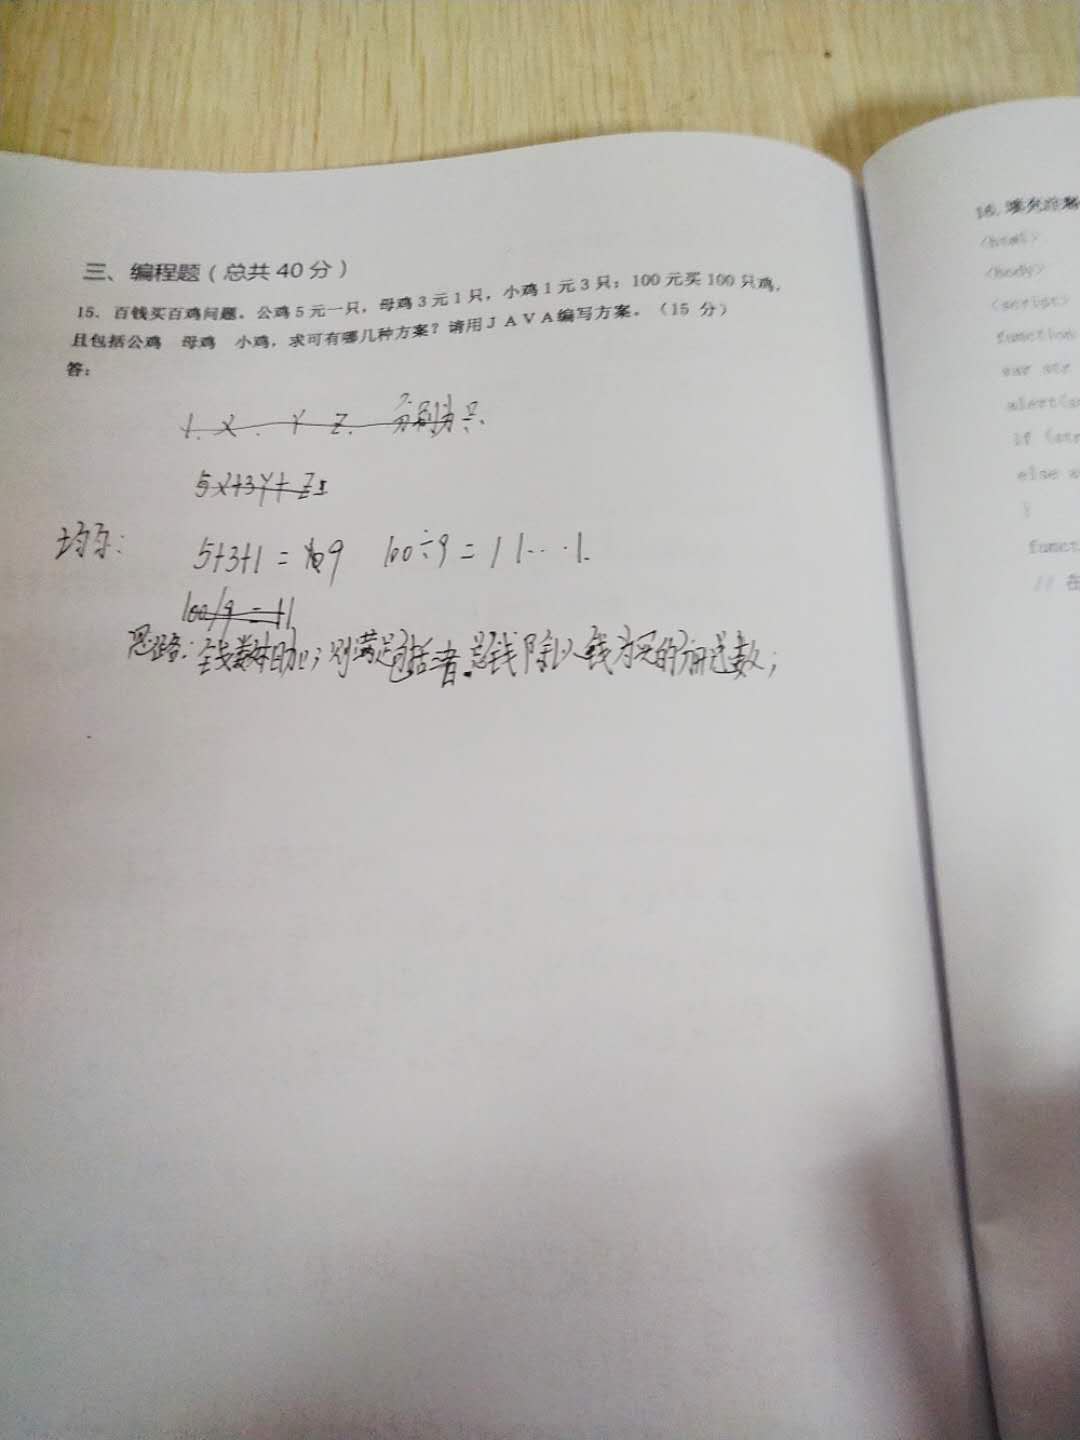 三、编程题（总共 40 分）
15. 百钱买百鸡问题。公鸡 5 元一只，母鸡 3 元 1 只，小鸡 1 元 3 只；100 元买 100 只鸡，
且包括公鸡 母鸡 小鸡，求可有哪几种方案？请用ＪＡＶＡ编写方案。（15 分）
答：
X. Y Z. 分别为只
5X+3Y+Z
均匀：
5+3+1 = 9 100÷9 = 11…1.
100/9 = 11
思路：
16.
<html>
<body>
<script>
function
var str
alert(
if (str
else a
}
funct
// 在